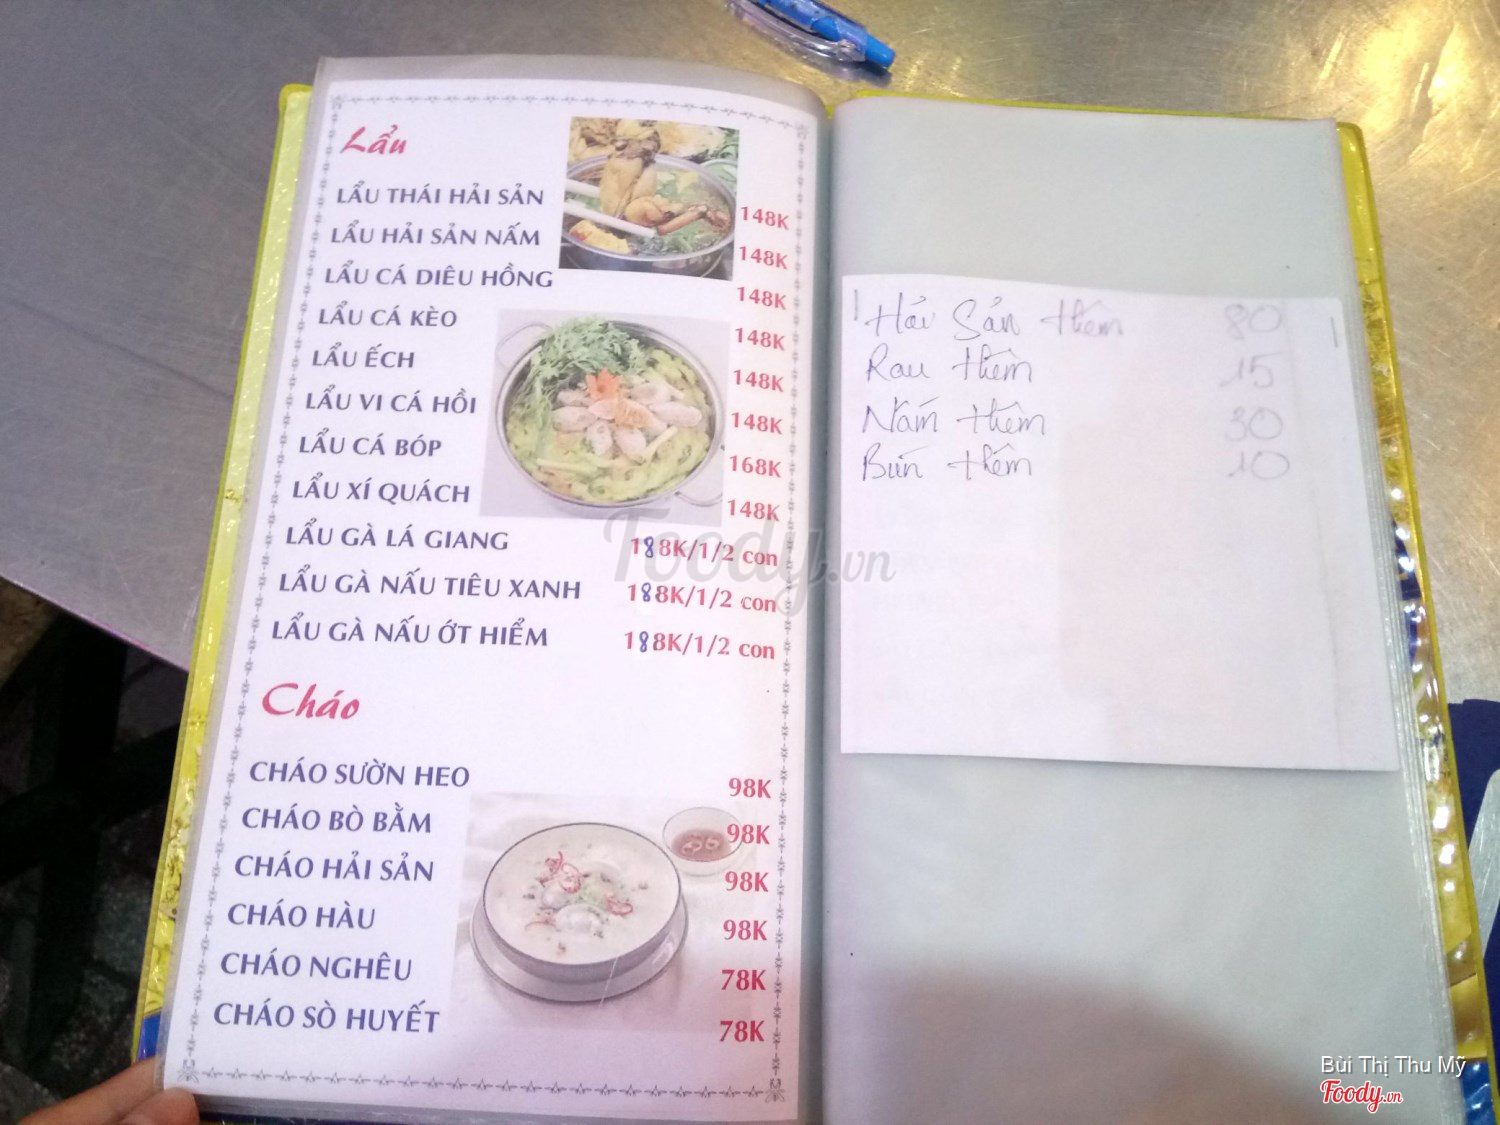 Lẩu
LẨU THÁI HẢI SẢN 148K
LẨU HẢI SẢN NẤM 148K
LẨU CÁ DIÊU HỒNG 148K
LẨU CÁ KÈO 148K
LẨU ẾCH 148K
LẨU VI CÁ HỒI 148K
LẨU CÁ BÓP 168K
LẨU XÍ QUÁCH 148K
LẨU GÀ LÁ GIANG 188K/1/2 con
LẨU GÀ NẤU TIÊU XANH 188K/1/2 con
LẨU GÀ NẤU ỚT HIỂM 188K/1/2 con
Cháo
CHÁO SƯỜN HEO 98K
CHÁO BÒ BẰM 98K
CHÁO HẢI SẢN 98K
CHÁO HÀU 98K
CHÁO NGHÊU 78K
CHÁO SÒ HUYẾT 78K
Hải Sản thêm 80
Rau thêm 15
Nấm thêm 30
Bún thêm 10
Foody.vn
Bùi Thị Thu Mỹ
Foody.vn